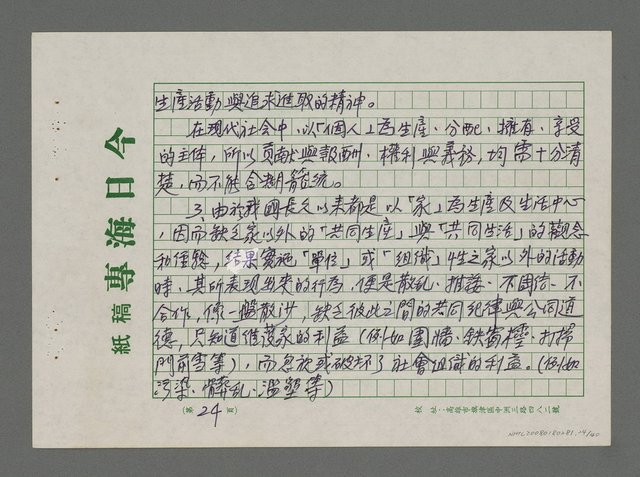 生產活動與追求進取的精神。
在現代社会中，以「個人」為生產、分配、擁有、享受
的主体，所以貢献與報酬、權利與義務，均需十分清
楚，而不能含糊籠统。
3、由於我國長久以來都是以「家」為生產及生活中心
，因而缺乏家以外的「共同生產」與「共同生活」的觀念
和经驗，结果實施「單位」或「组織」性之家以外的活動
時，其所表现出來的行為，便是散乱、推諉、不團结、不
合作，像一盤散沙，缺乏彼此之間的共同纪律與公同道
德，只知道維護家的利益（例如圍牆、鉄窗櫺、打掃
門前雪等），而忽略或破坏了社會组織的利益。（例如
污染、髒乱、濫墾等）
今日海專
稿紙
(第24頁)
校址：高雄市旗津區中洲三路四八二號
NMTL20080180281.24/40